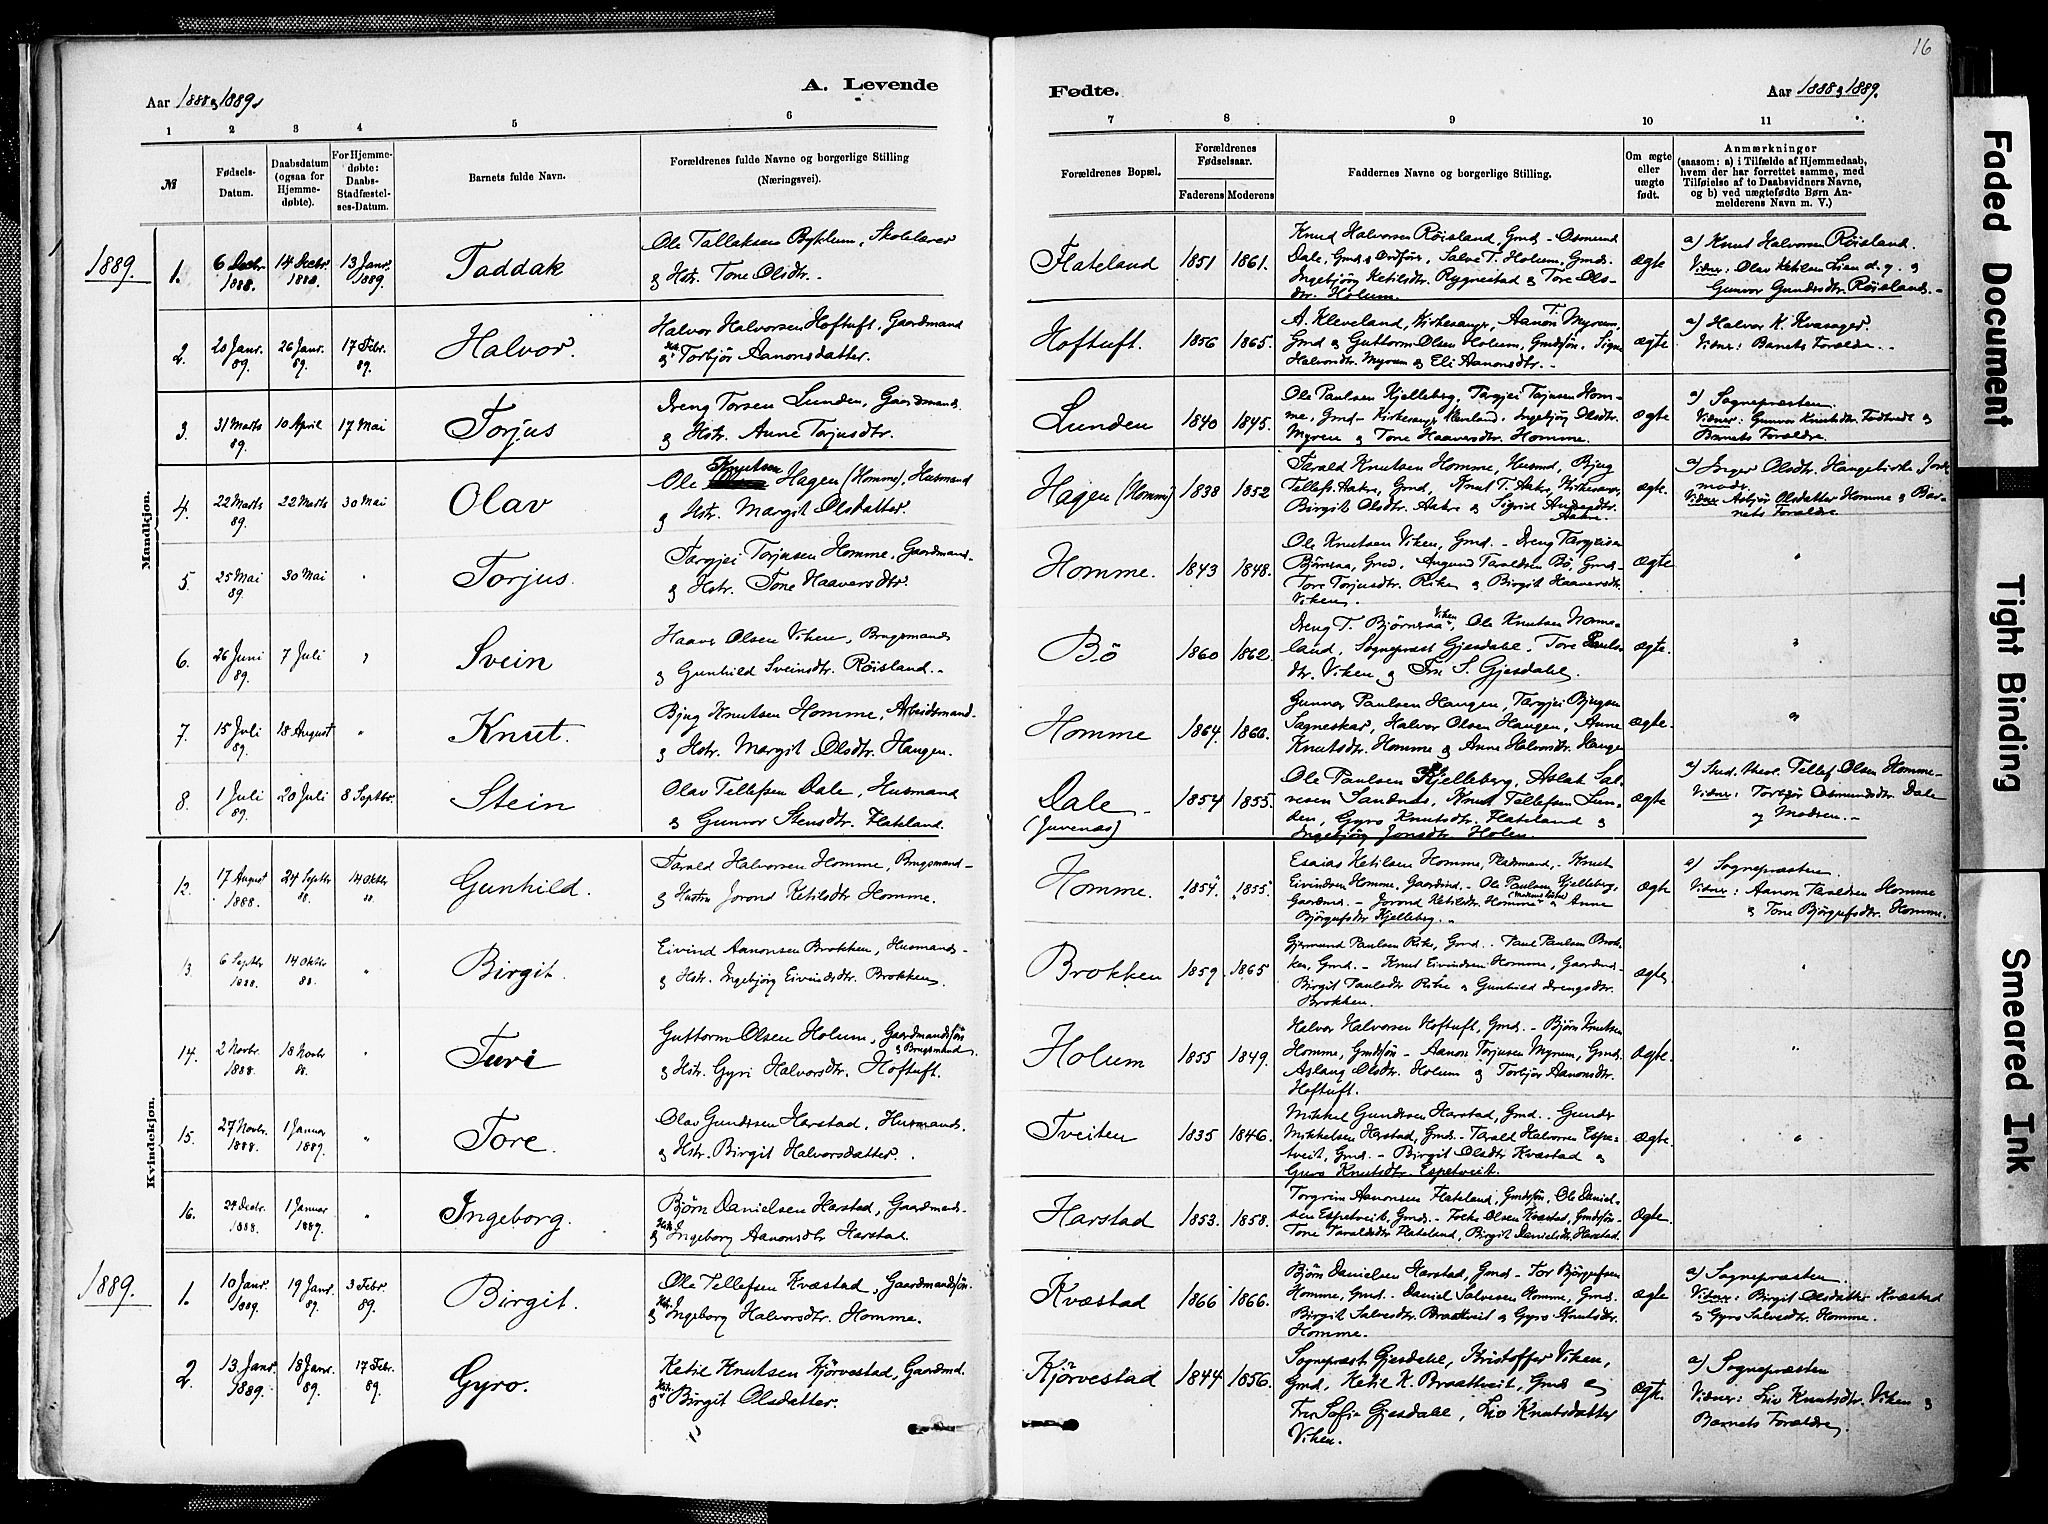 16
Aar 1888 og 1889.
A. Levende
Fødte.
Aar 1888 og 1889.
1 2 3 4 5 6 7 8 9 10 11
№
Fødsels-
Datum.
Daabsdatum
(ogsaa for
Hjemme-
døbte).
For Hjemme-
døbte:
Daabs-
Stadfæstel-
ses-Datum.
Barnets fulde Navn.
Forældrenes fulde Navne og borgerlige Stilling
(Næringsvei).
Forældrenes Bopæl.
Forældrenes
Fødselsaar.
Faderens Moderens
Faddernes Navne og borgerlige Stilling.
Om ægte
eller
uægte
født.
Anmærkninger
(saasom: a) i Tilfælde af Hjemmedaab,
hvem der har forrettet samme, med
Tilføielse af to Daabsvidners Navne,
og b) ved uægtefødte Børn An-
melderens Navn m. V.)
Mandkjøn.
1889.
1. 6 Decbr. 1888. 14 Decbr. 1888. 13 Janr. 1889. Taddak
Ole Tallaksen Byklum, Skolelærer
og Hstr. Tone Olsdtr.
Flateland 1851 1861.
Knud Halvorsen Røisland, Gmd - Osmund
Dale, Gmd & Ordfør, Salve T. Holum, Gmd.
Ingebjørg Ketilsdtr. Rygnestad og Tore Ols-
dtr. Holum.
ægte
a) Knut Halvorsen Røisland.
Vidner: Olav Ketilsen Lien d.y. og
Gunvor Gundersdtr. Røisland. -
2. 20 Janr. 89. 26 Janr. 89. 17 Febr. 89. Halvor.
Halvor Halvorsen Hoftuft, Gaardmand
og Torbjør Aanonsdatter.
Hoftuft. 1856 1865.
A. Kleveland, Kirkesanger, Aanon T. Myrum,
Gmd og Guttorm Olsen Holum, Gmdsøn, Signe
Halvorsdtr. Myrum og Eli Aanonsdtr. -
ægte
a) Halvor K. Kvasager.
Vidner: Barnets Forældre. -
3. 31 Marts 89. 10 April 17 Mai Torjus
Dreng Torsen Lunden, Gaardmand.
og Hstr. Anne Torjusdtr.
Lunden 1840 1845.
Ole Paulsen Kjelleberg, Targjei Torjusen Hom-
me, Gmd - Kirkesanger Kleveland, Ingebjør Olsdtr.
Myren og Tone Haaversdtr. Homme.
ægte
a) Sognepræsten.
Vidner: Gunvor Knutsdtr. og
Barnets Forældre.
4. 22 Marts 89. 22 Marts 30 Mai Olav
Ole Knutsen Hagen (Homme), Husmand
og Hstr. Margit Olsdatter.
Hagen (Homme) 1838 1852
Tarald Knutsen Homme, Husmd, Bjug
Tellefs. Aakre, Gmd, Knut T. Aakre, Kirkesanger,
Birgit Olsdtr. Aakre og Sigrid
Aakre.
ægte.
a) Inger Olsdtr. Jorde
moder.
Vidner Asbjør Olsdatter Homme og Bar-
nets Forældre
5 25 Mai 89. 30 Mai " Torjus.
Targjei Torjusen Homme, Gaardmand -
og Hstr. Tone Haaversdtr.
Homme. 1843 1848.
Ole Knutsen Viken, Gmd. - Dreng Targjeisen
Bjørnsaa, Gmd, Angund Taraldsen Bø, Gmd -
Tore Torjusdtr. Rike og Birgit Haaversdtr.
Viken.
ægte "
6. 26 Juni 89. 7 Juli " Svein
Haaver Olsen Viken, Brugsmand
og Gunhild Sveinsdtr. Røisland. -
Bø 1860 1862.
Dreng T. Bjørnsaa, Ole Knutsen Noms-
land, Sognepræst Gjesdahl, Tore Pauls-
dtr. Viken og Fru S. Gjesdahl.
ægte. "
7. 15 Juli 89. 18 August " Knut.
Bjug Knutsen Homme, Arbeidsmand -
og Hstr. Margit Olsdtr. Haugen.
Homme 1864. 1866.
Gunnar Paulsen Haugen, Targjei Bjugsen
Sagneskar, Halvor Olsen Haugen, Anne
Knutsdtr. Homme og Anne Halvorsdtr. Haugen
ægte. "
8. 1 Juli 89. 20 Juli 8 Septbr. Stein
Olav Tellefsen Dale, Husmand
og Gunvor Stensdtr. Flateland.
Dale
(Juvenæs) 1854 1855.
Ole Paulsen Kjelleberg, Aslak Sal-
vesen Sandnæs, Knut Tellefsen Lun-
den, Gyro Knutsdtr. Flateland og
Ingebjørg Jonsdtr. Holen.
ægte
a) Stud. theol. Tellef Olsen Homme -
Vidner: Torbjør Osmundsdtr. Dale
og Modren. -
Kvindekjøn.
12. 17 August 1888. 24 Septbr 88. 14 Oktbr 88. Gunhild.
Tarald Halvorsen Homme, Brugsmand -
og Hustru Jorond Ketilsdtr Homme.
Homme. 1854. 1855.
Esaias Ketilsen Homme, Pladsmand, - Knut
Eivindsen Homme, Gaardmd. - Ole Paulsen Kjelleberg,
Gaardmd. - Jorond Ketilsdtr. Homme og Anne
Bjørgufsdtr Kjelleberg. -
ægte
a) Sognepræsten.
Vidner: Aanon Taraldsen Homme
og Tone Bjørgufsdtr. Homme.
13. 6 Septbr 1888. 14 Oktbr 88. " Birgit.
Eivind Aanonsen Brokken, Husmand -
og Hstr. Ingebjørg Eivindsdtr. Brokken.
Brokken 1859. 1865
Gjermund Paulsen Rike, Gmd. - Paul Paulsen Brok-
ken, Gmd. - Knut Eivindsen Homme, Gaardmd -
Birgit Paulsdtr Rike og Gunhild Drengsdtr.
Brokken.
ægte "
14. 2 Novbr. 1888. 18 Novbr 88. " Turi
Guttorm Olsen Holum, Gaardmandssøn
og Brugsmand
og Hstr. Gyri Halvorsdtr. Hoftuft.
Holum 1855 1849.
Halvor Halvorsen Hoftuft, Gmd. - Bjørn Knutsen
Homme, Gmdsøn - Aanon Torjusen Myrum, Gmd.
Aslaug Olsdtr. Holum og Torbjør Aanonsdtr.
Hoftuft.
ægte. "
15. 27 Novbr. 1888. 1 Januar 1889. " Tore.
Olav Gundersen Harstad, Husmand.
og Hstr. Birgit Halvorsdatter.
Tveiten 1835 1846.
Mikkel Gundersen Harstad, Gmd. - Gunder
Mikkelsen Harstad, Gmd. - Tarald Halvorsen Espe-
tveit, Gmd. - Birgit Olsdtr Kvæstad og
Guro Knutsdtr. Espetveit.
ægte. "
16. 24 Decbr. 1888. 1 Januar 1889. " Ingeborg.
Bjørn Danielsen Harstad, Gaardmand -
og Hstr. Ingeborg Aanonsdtr Harstad.
Harstad 1853. 1858.
Torgrim Aanonsen Flateland, Gmdsøn, Ole Daniel-
sen Espetveit, Gmd. - Folke Olsen Kvæstad, Gmdsøn -
Tone Taraldsdtr Flateland, Birgit Danielsdtr. Harstad.
ægte.
1889.
1. 10 Janr. 1889. 19 Janr. 89. 3 Febr. 89. Birgit.
Ole Tellefsen Kvæstad, Gaardmandssøn.
og Hstr. Ingeborg Halvorsdtr. Homme.
Kvæstad 1866 1866.
Bjørn Danielsen Harstad, Gmd - Tor Bjørgufsen
Homme, Gmd. - Daniel Salvesen Homme, Gmd.
Birgit Salvesdtr Brattveit og Gyro Knutsdtr.
Homme.
ægte
a) Sognepræsten.
Vidner: Birgit Olsdatter Kvæstad
og Gyro Salvesdtr. Homme.
2. 13. Janr 1889. 18 Janr. 89. 17 Febr. 89. Gyro.
Ketil Knutsen Kjørvestad, Gaardmd.
og Hstr. Birgit Olsdatter.
Kjørvestad 1844 1856.
Sognepræst Gjesdahl, Kristoffer Viken,
Gmd, Ketil K. Brattveit, Gmd og
Fru Sofie Gjesdahl, Liv Knutsdatter
Viken.
ægte.
a) Sognepræsten
Vidner: Liv Knutsdtr. Viken og
Barnets Forældre.
Faded Document
Tight Binding
Smeared Ink